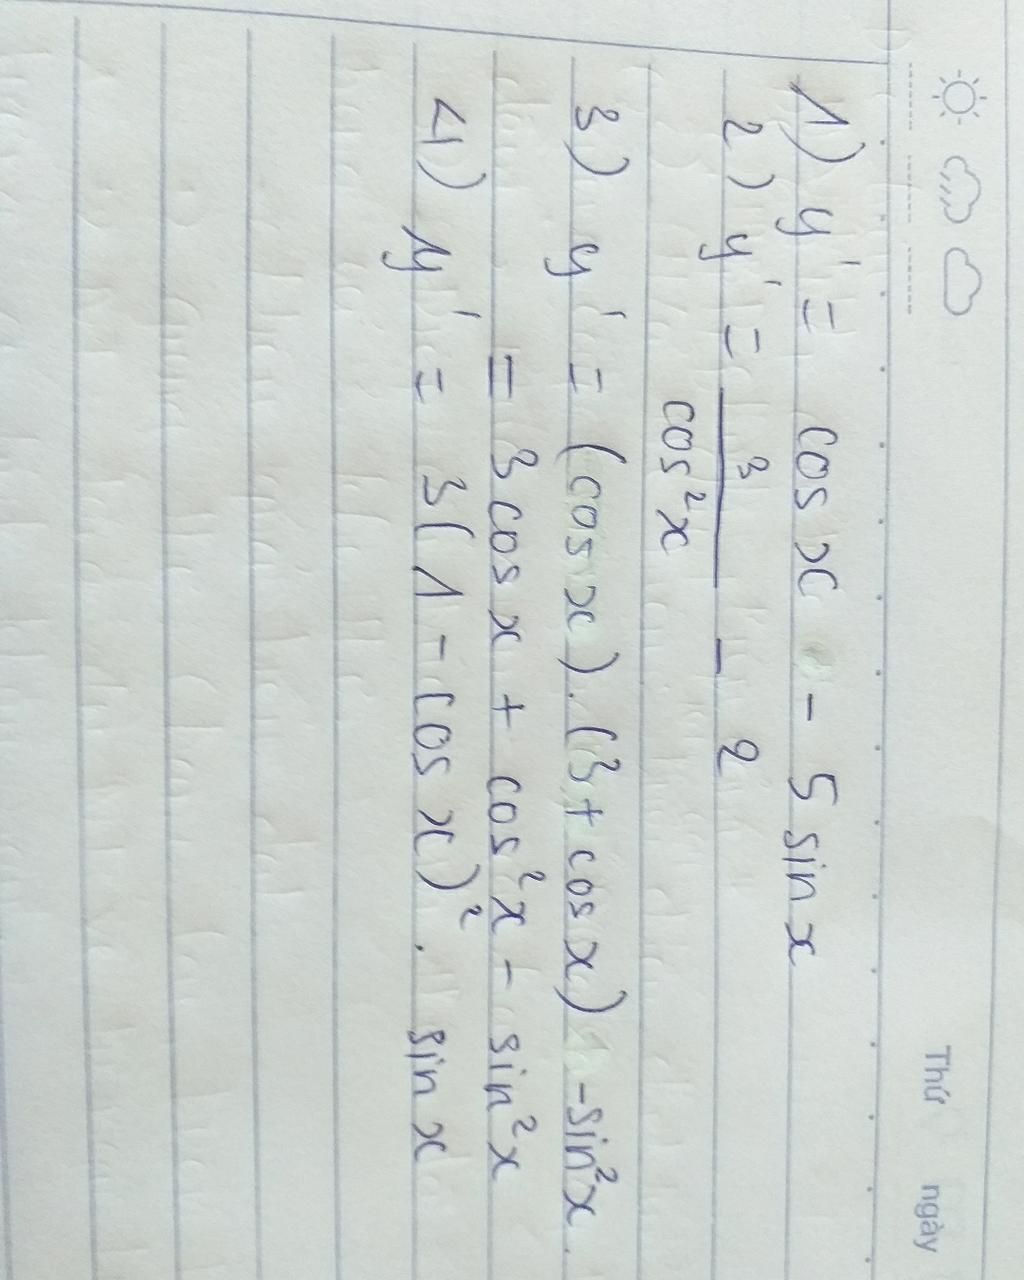 Thứ ngày
1) y' = cos x - 5 sin x
2) y' = 3/cos²x - 2
3) y' = (cos x).(3 + cos x) - sin²x.
= 3 cos x + cos²x - sin²x
4) y' = 3(1 - cos x)². sin x